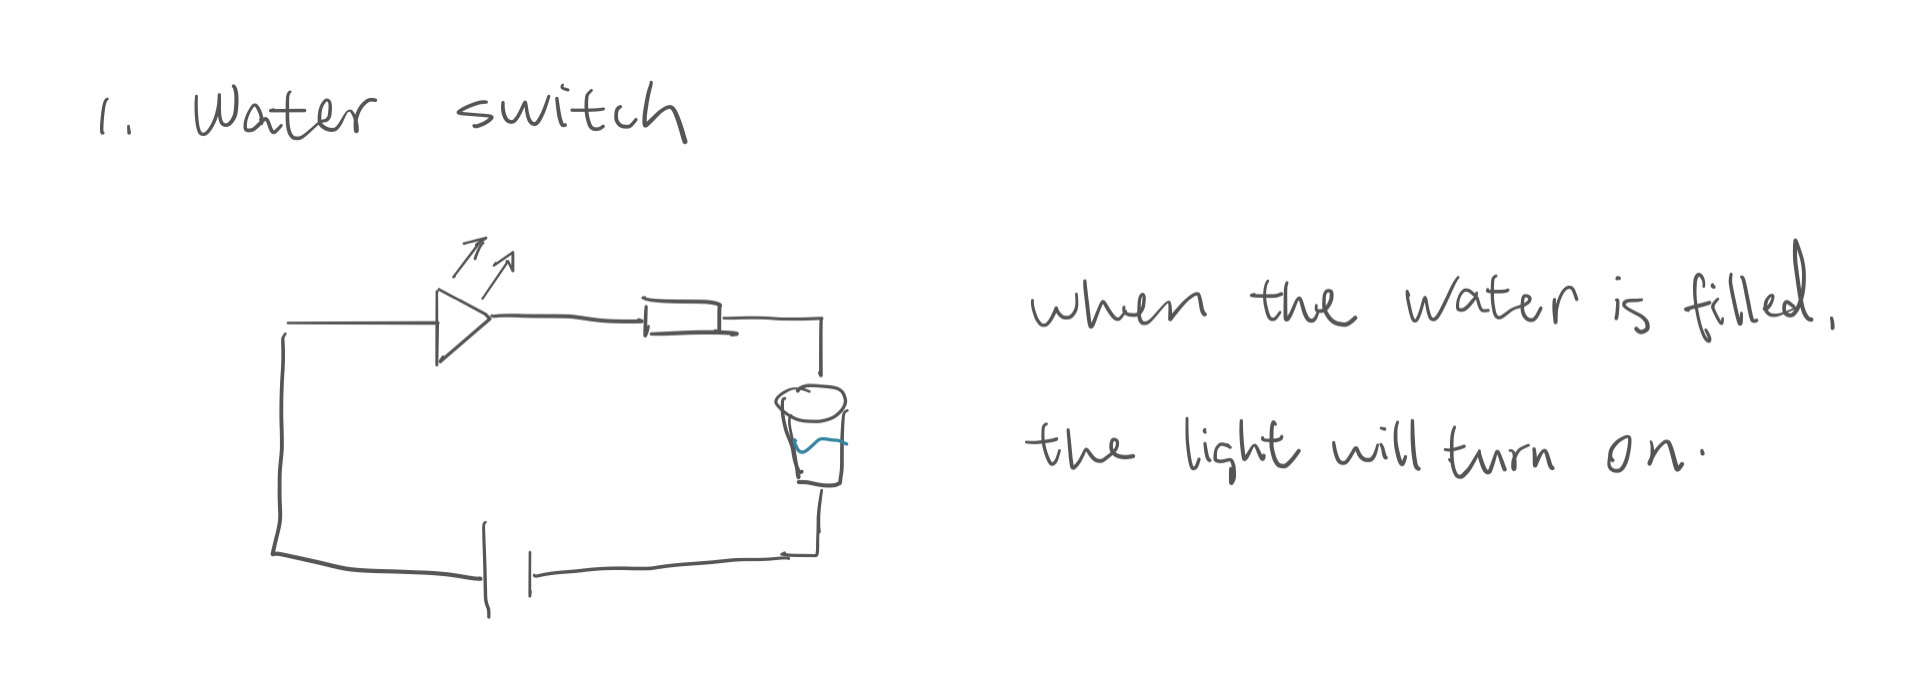 1. Water switch
when the water is filled,
the light will turn on.